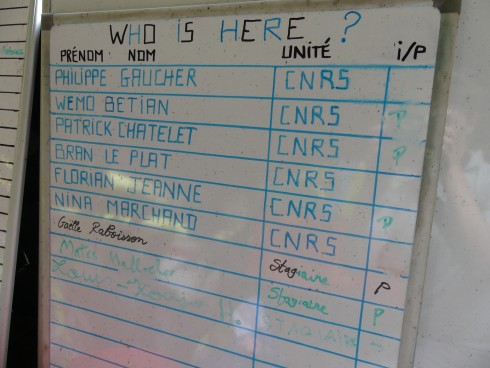 WHO iS HERE ?
PRÉNOM NOM UNITÉ i/P
PHILIPPE GAUCHER CNRS
WEMO BETIAN CNRS P
PATRICK CHATELET CNRS P
BRAN LE PLAT CNRS
FLORIAN JEANNE CNRS P
NINA MARCHAND CNRS
Gaëlle Raboisson Stagiaire P
Stagiaire P
STAGIAIRE